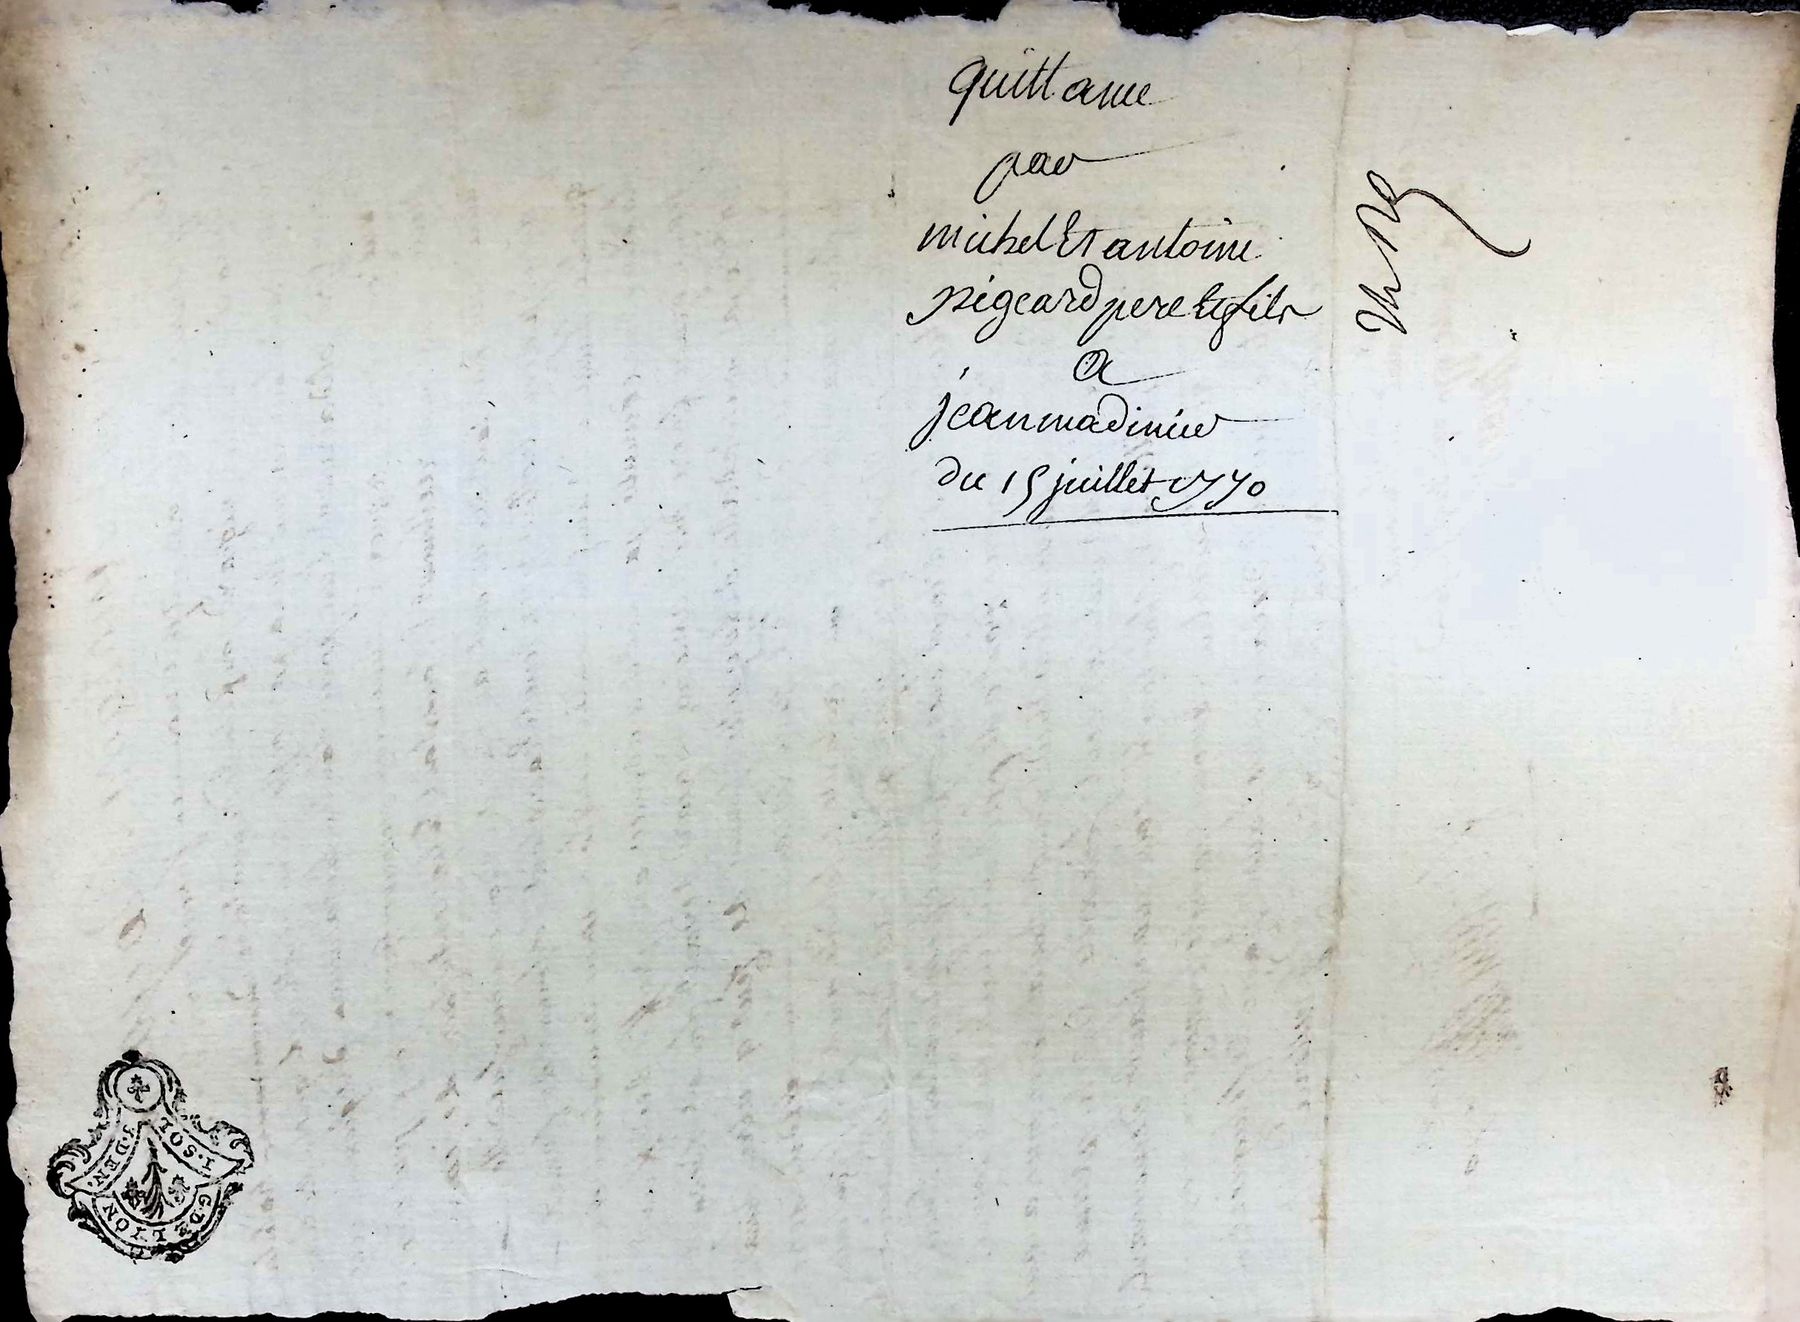 quittance
par
michel Et antoine
pigeard pere Et fils
a
jean madinier
du 15 juillet 1770
I. SOL
3. DEN.
G. DE LYON